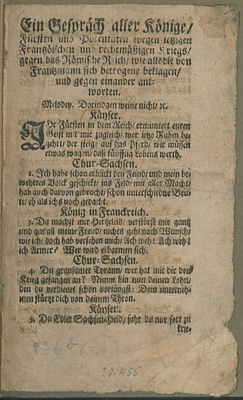 Ein Gespräch aller Könige/
Fürsten und Potentaten wegen jetzigen
Frantzöischen und rechtmäßigen Kriegs/
gegen das Römische Reich/ wie alle die von
Frantzmann sich betrogene beklagen/
und gegen einander ant-
worten.
Melodey. Dorindgen weine nicht/ ꝛc.
Käyser.
IHr Fürsten in dem Reich/ ermuntert euren
Geist mit mir zugleich/ wer jetzo Ruhm be-
gehrt/ der steig/ auf das Pferd/ wir müssen
etwas wagen/ daß künfftig lobens werth.
Chur-Sachsen.
2. Ich habe schon erblickt den Feind/ und mein be-
wehrtes Volck geschickt/ ins Feld/ mit aller Macht/
hab auch davon gebracht/ schon unterschiedne Beu-
te/ eh als ichs noch gedacht.
König in Franckreich.
3. Du machst mir Hertzleid/ verstörst mir gantz
und gar all meine Freud/ nichts geht nach Wunsch/
wie ich/ doch hab verhofft mich/ Ach weh! Ach weh!
ich Armer/ Wer wird erbarmen sich.
Chur-Sachsen.
4. Du grausamer Tyrann/ wer hat mit dir den
Krieg gefangen an? Nimm hin nun deinen Lohn/
den du verdienet schon vorlängst: Dein unterneh-
men stürtzt dich von deinem Thron.
Käyser.
5. Du Edler Sachsen-Held/ fahr du nur fort zu
krie-